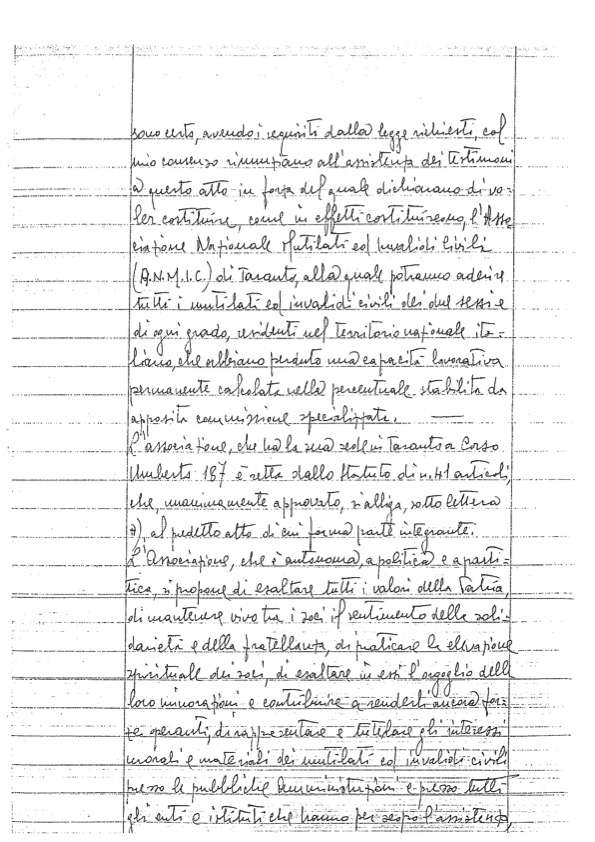 sono certo, avendo i requisiti dalla legge richiesti, col
mio consenso rinunziano all'assistenza dei testimoni
a questo atto in forza del quale dichiarano di vo=
ler costituire, come in effetti costituiscono, l'Asso
ciazione Nazionale Mutilati ed Invalidi Civili
(A.N.M.I.C.) di Taranto, alla quale potranno aderire
tutti i mutilati ed invalidi civili dei due sessi e
di ogni grado, residenti nel territorio nazionale ita=
liano, che abbiano perduto una capacità lavorativa
permanente calcolata nella percentuale stabilita da
apposita commissione specializzate.
L'associazione, che ha la sua sede in Taranto a Corso
Umberto 187 è retta dallo Statuto di n. 41 articoli,
che, unanimamente approvato, si alliga, sotto lettera
A), al predetto atto di cui forma parte integrante.
L'Associazione, che è autonoma, apolitica e aparti=
tica, si propone di esaltare tutti i valori della Patria,
di mantenere vivo tra i soci il sentimento della soli=
darietà e della fratellanza, di praticare la elevazione
spirituale dei soci, di esaltare in essi l'orgoglio della
loro minorazioni e contribuire a renderli ancora for=
ze operanti, di rappresentare e tutelare gli interessi
morali e materiali dei mutilati ed invalidi civili
presso le pubbliche Amministrazioni e presso tutti
gli enti e istituti che hanno per scopo l'assistenza,